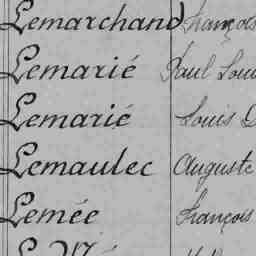 Lemarchand François
Lemarié Paul Loui
Lemarié Louis
Lemaulec Auguste
Lemée François